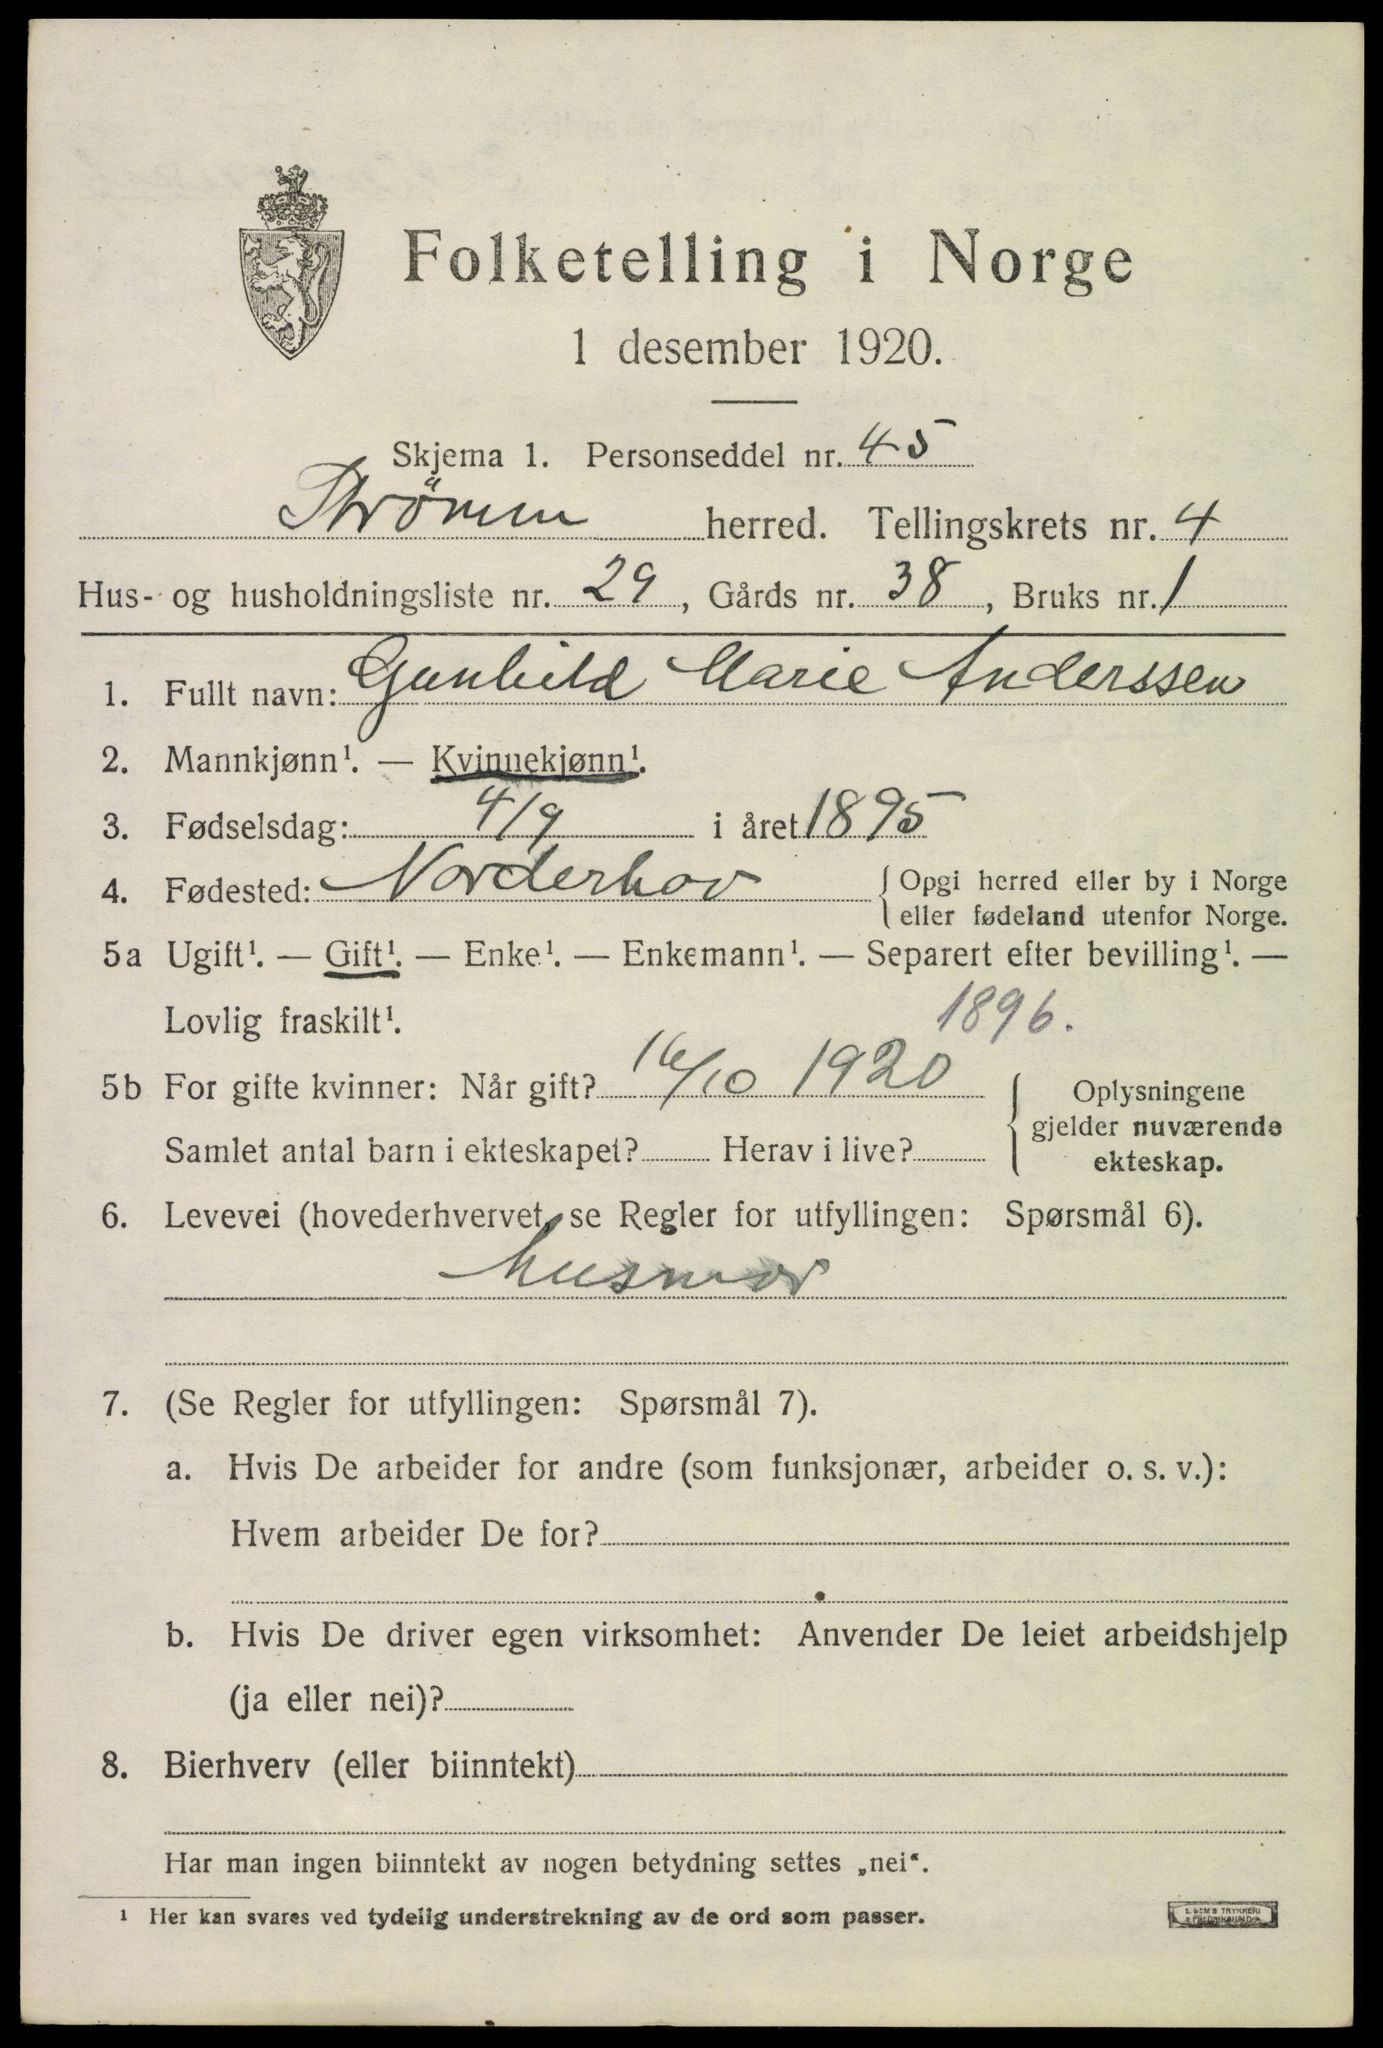 Folketelling i Norge
1 desember 1920.
Skjema 1. Personseddel nr. 45
Strømm herred. Tellingskrets nr. 4
Hus- og husholdningsliste nr. 29, Gårds nr. 38, Bruks nr. 1
1. Fullt navn: Gunhild Marie Anderssen
2. Mannkjønn¹. — Kvinnekjønn¹.
3. Fødselsdag: 4/9 i året 1895
4. Fødested: Norderhov { Opgi herred eller by i Norge
eller fødeland utenfor Norge.
5a Ugift¹. — Gift¹. — Enke¹. — Enkemann¹. — Separert efter bevilling¹. —
Lovlig fraskilt¹. 1896.
5b For gifte kvinner: Når gift? 16/10 1920
Samlet antal barn i ekteskapet? Herav i live?
{ Oplysningene
gjelder nuværende
ekteskap.
6. Levevei (hovederhvervet, se Regler for utfyllingen: Spørsmål 6).
husmor
7. (Se Regler for utfyllingen: Spørsmål 7).
a. Hvis De arbeider for andre (som funksjonær, arbeider o. s. v.):
Hvem arbeider De for?
b. Hvis De driver egen virksomhet: Anvender De leiet arbeidshjelp
(ja eller nei)?
8. Bierhverv (eller biinntekt)
Har man ingen biinntekt av nogen betydning settes „nei“.
¹ Her kan svares ved tydelig understrekning av de ord som passer.
E. SEM'S TRYKKERI
FREDRIKSHALD